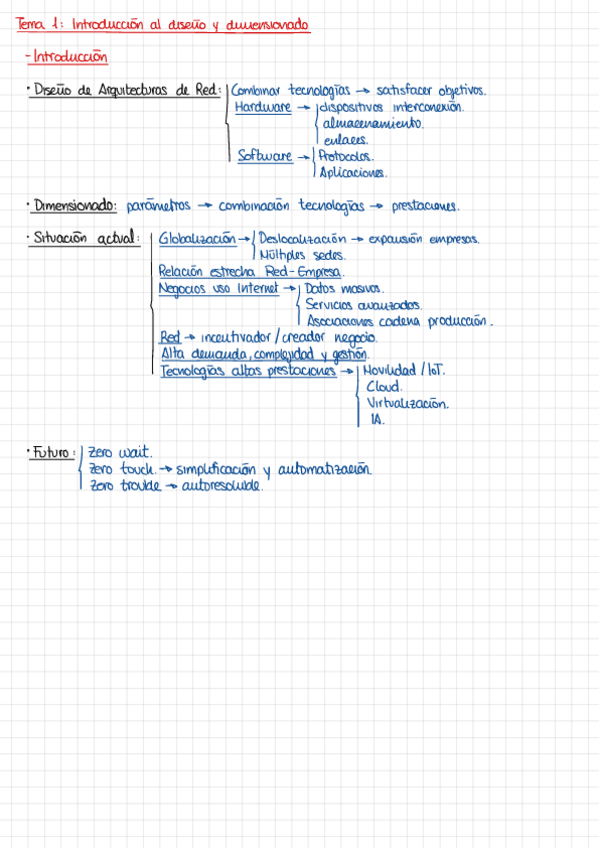 Tema 1: Introducción al diseño y dimensionado
- Introducción
· Diseño de Arquitecturas de Red: Combinar tecnologías → satisfacer objetivos.
Hardware → dispositivos interconexión.
almacenamiento.
enlaces.
Software → Protocolos.
Aplicaciones.
· Dimensionado: parámetros → combinación tecnologías → prestaciones.
· Situación actual: Globalización → Deslocalización → expansión empresas.
Múltiples sedes.
Relación estrecha Red-Empresa.
Negocios uso Internet → Datos masivos.
Servicios avanzados.
Asociaciones cadena producción.
Red → incentivador/creador negocio.
Alta demanda, complejidad y gestión.
Tecnologías altas prestaciones → Movilidad/IoT.
Cloud.
Virtualización.
IA.
· Futuro: Zero wait.
Zero touch. → simplificación y automatización.
Zero trouble → autoresoluble.